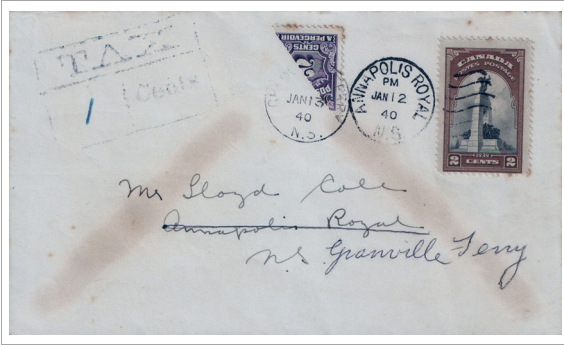 TAX
1
CENTS
À PERCEVOIR
2
JAN 13
40
N.S.
ANNAPOLIS ROYAL
PM
JAN 12
40
N.S.
CANADA
POSTES POSTAGE
2 CENTS 2
Mr Lloyd Cole
Annapolis Royal
NS Granville Ferry